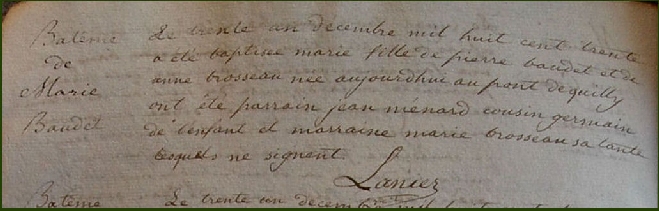 Batême
de
Marie
Baudet
Le trente un decembre mil huit cent trente
a été baptisée marie fille de pierre baudet et de
anne brosseau née aujourdhui au pont de quilly
ont été parrain jean ménard cousin germain
de l'enfant et marraine marie brosseau sa tante
lesquels ne signent
Lanier
Batême
Le trente un decembre mil